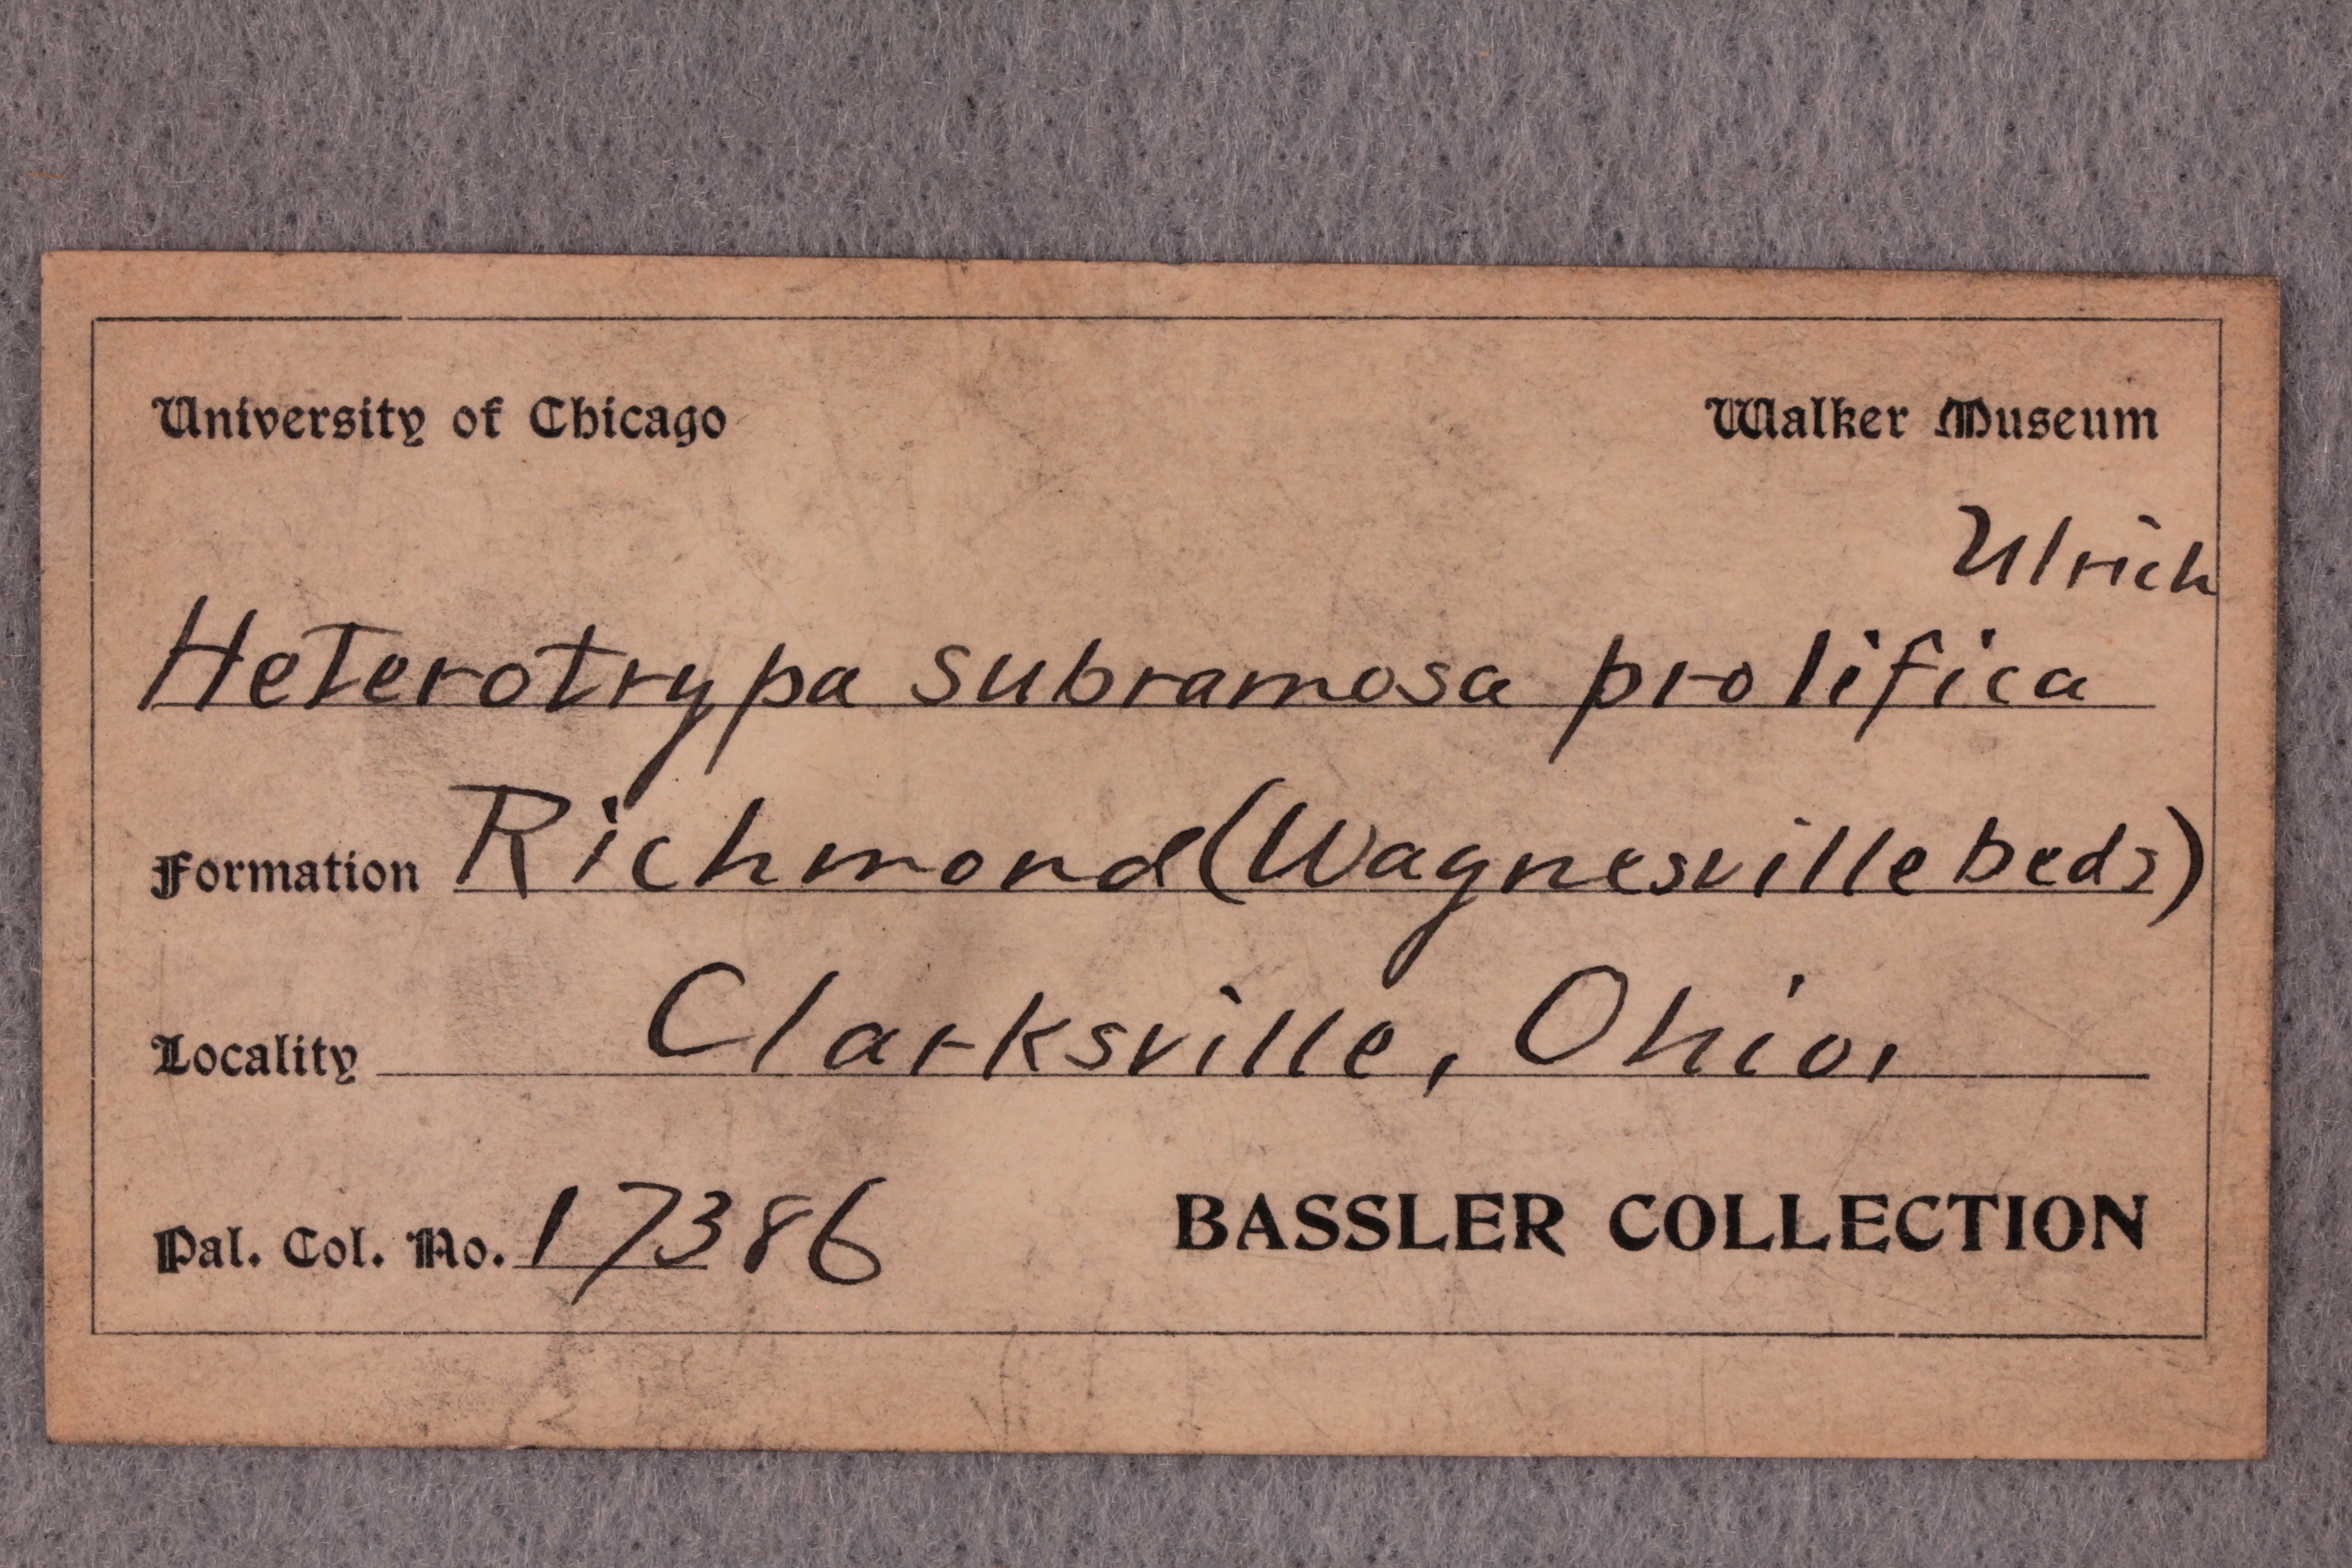 University of Chicago Walker Museum
Ulrich
Heterotrypa subramosa prolifica
Formation Richmond (Waynesville beds)
Locality Clarksville, Ohio.
Pal. Col. No. 17386 BASSLER COLLECTION